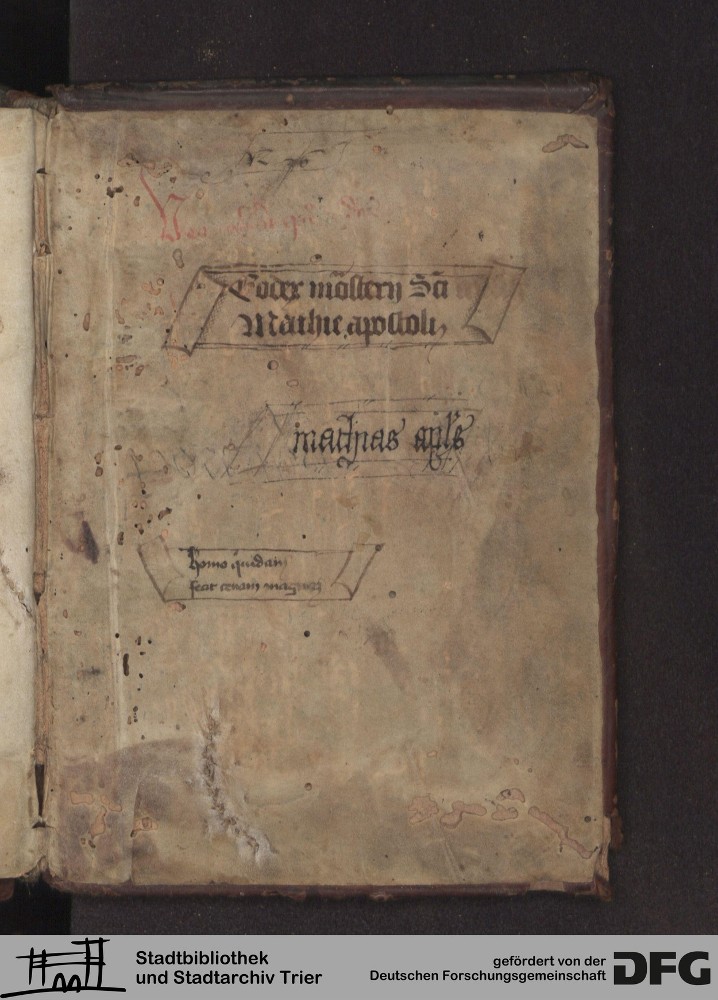 Codex mo̅sterij Sci̅
Mathie apostoli
mathias apl̅s
homo quidam
fecit cenam magnam
Stadtbibliothek
und Stadtarchiv Trier
gefördert von der
Deutschen Forschungsgemeinschaft
DFG